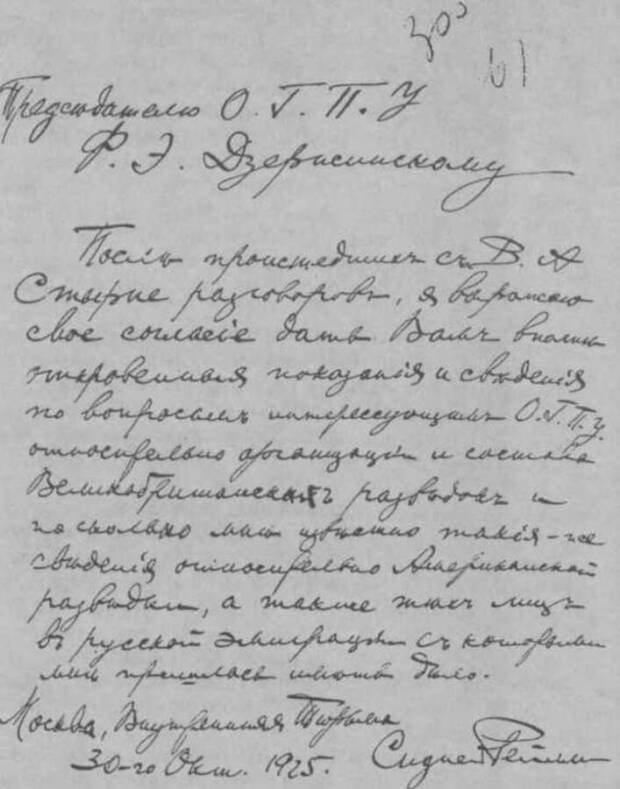 30
61
Председателю О. Г. П. У
Ф. Э. Дзержинскому
Послѣ происшедших съ В. А
Стырне разговоровъ, я выражаю
свое согласіе дать Вамъ вполнѣ
откровенныя показанія и свѣденія
по вопросамъ интересующимъ О.Г.П.У.
относительно организаціи и состава
Великобританскихъ разведокъ и
по сколько мнѣ извѣстно такія-же
свѣденія относительно Американской
разведки, а также тѣхъ лицъ
въ русской эмиграціи съ которыми
мнѣ пришлось имѣть дѣло.
Москва, Внутренняя Тюрьма
30-го Окт. 1925. Сидней Рейлли